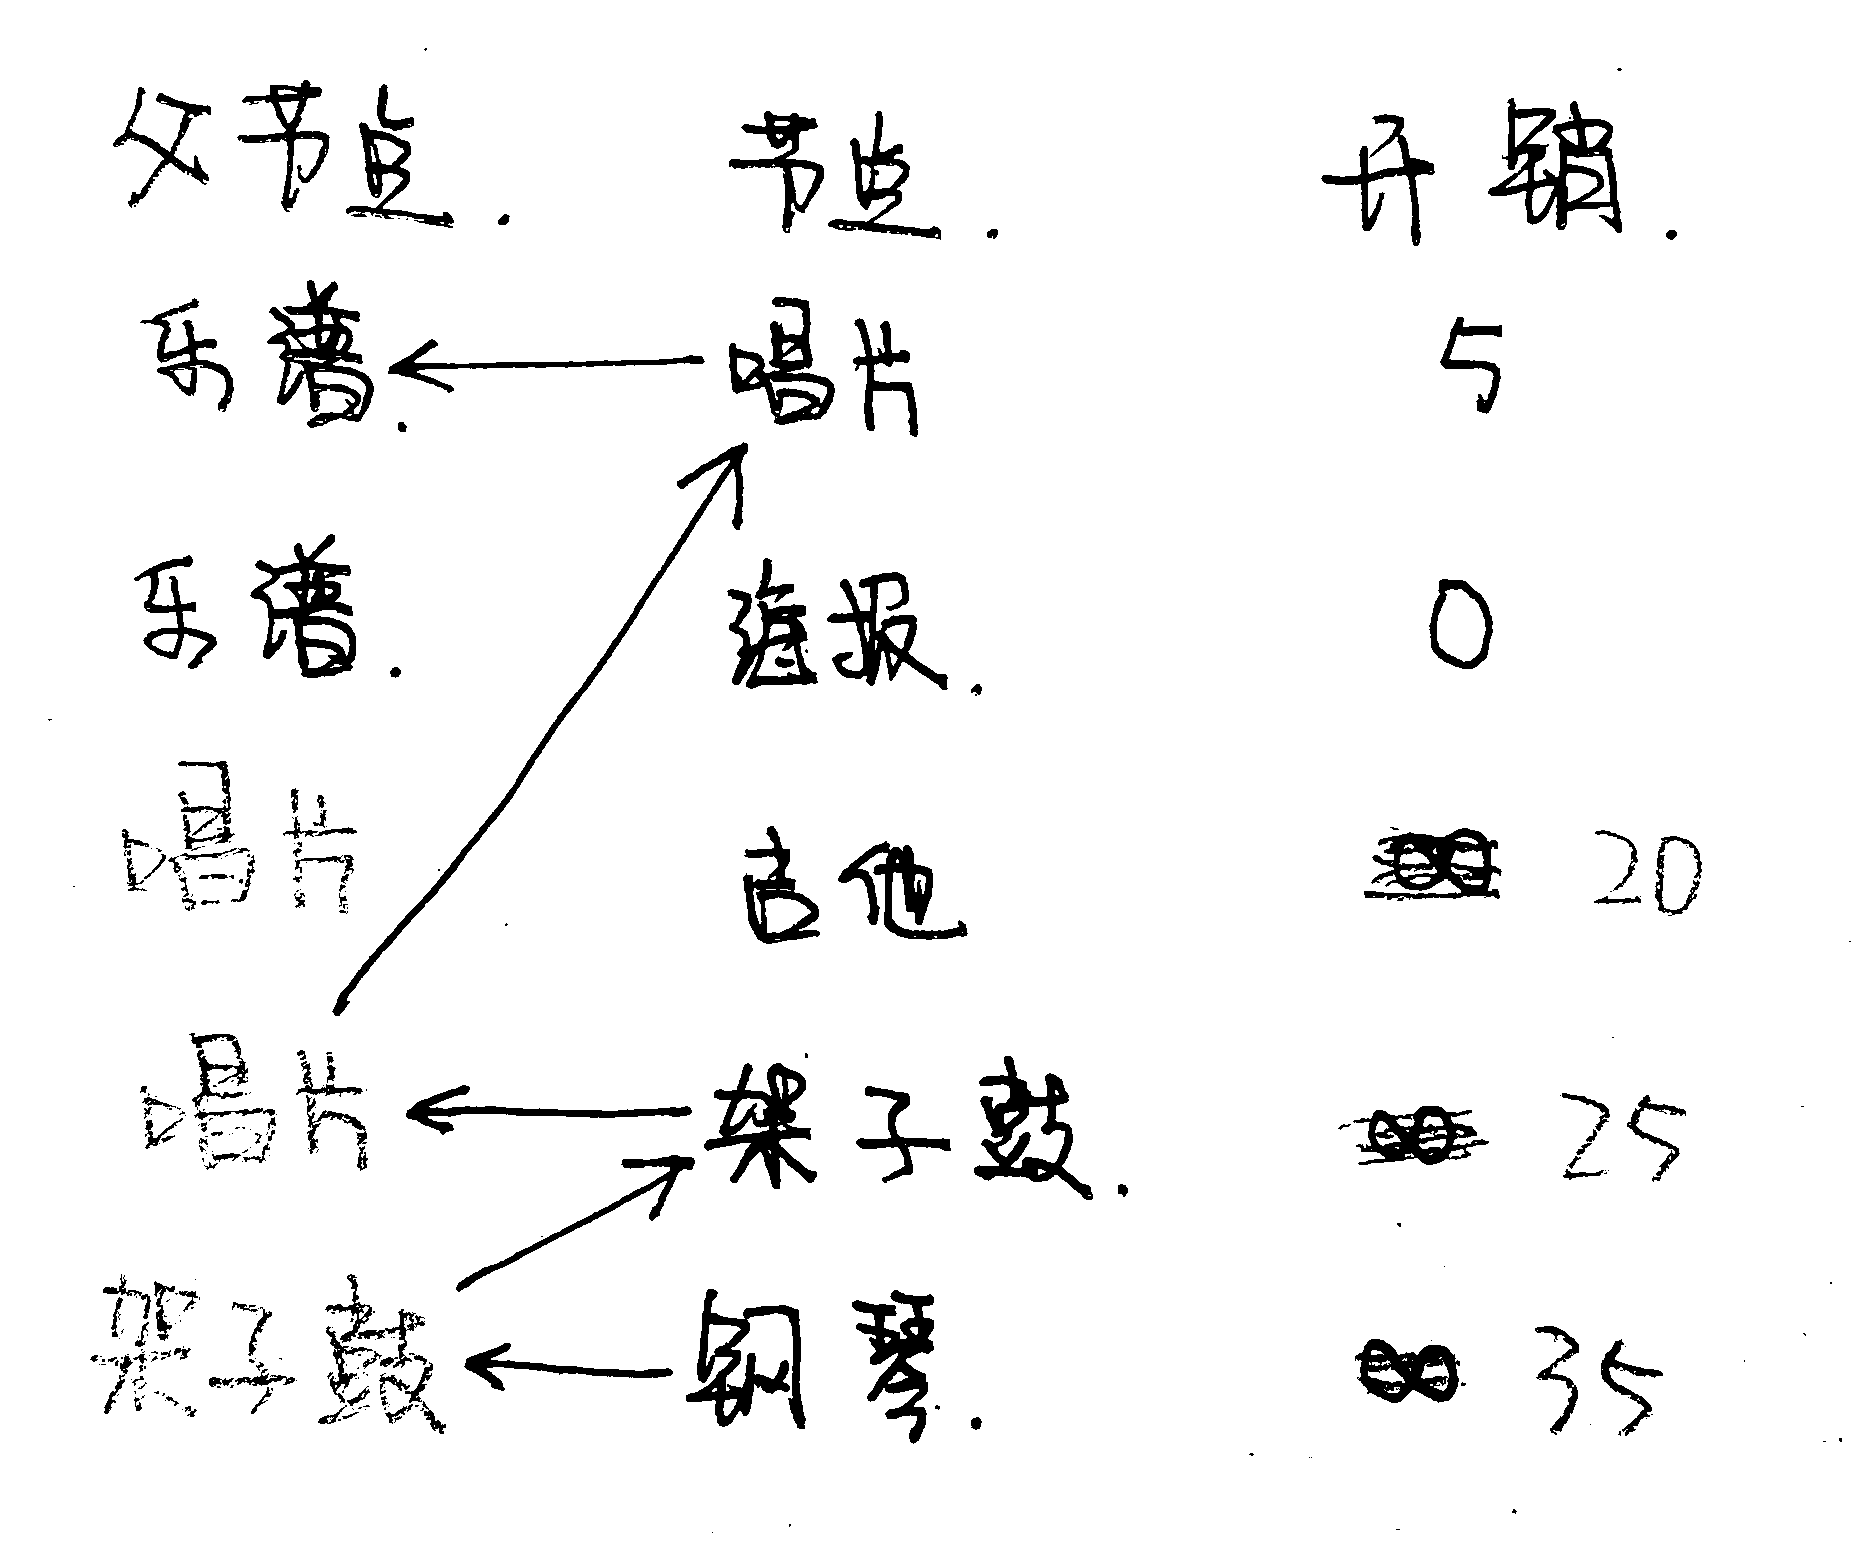 父节点. 节点. 开销.
乐谱. 唱片 5
乐谱. 海报. 0
唱片 吉他 ∞ 20
唱片 架子鼓. ∞ 25
架子鼓 钢琴. ∞ 35